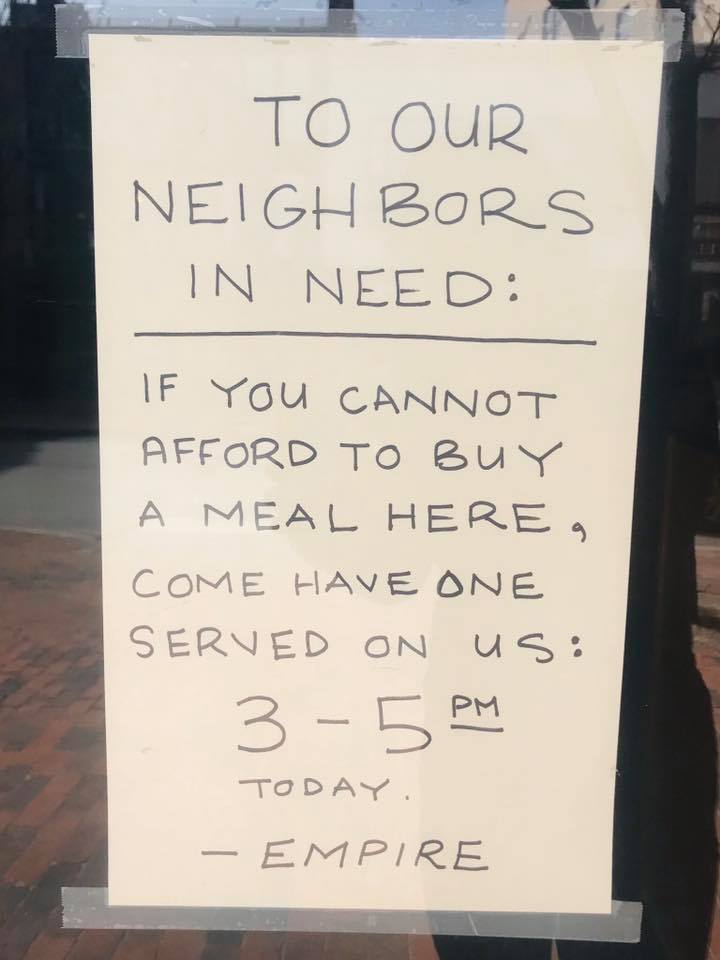 TO OUR
NEIGHBORS
IN NEED:
IF YOU CANNOT
AFFORD TO BUY
A MEAL HERE,
COME HAVE ONE
SERVED ON US:
3-5 PM
TODAY.
- EMPIRE